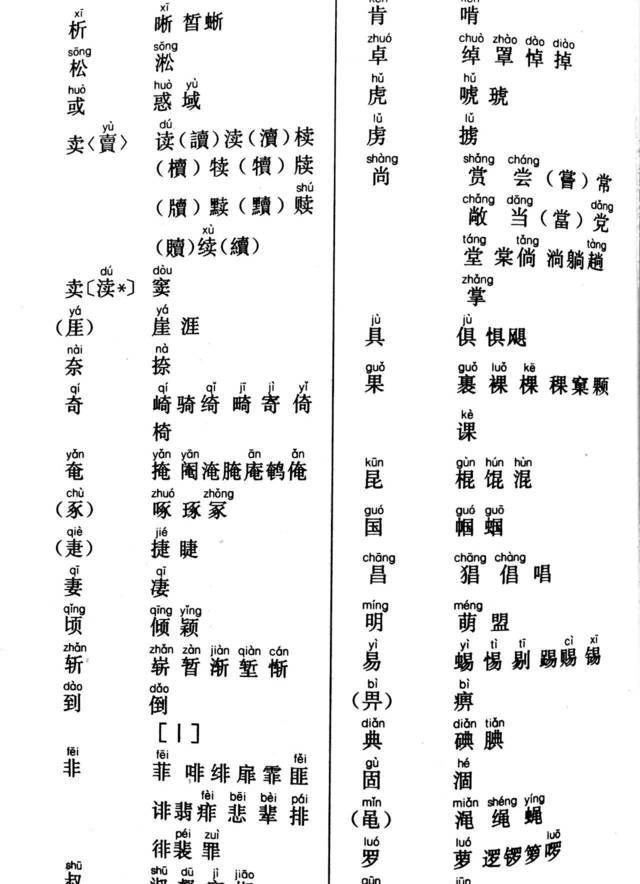 xī xī
析 晰 皙 蜥
sōng sōng
松 淞
huò huò yù
或 惑 域
yù dú
卖〈賣〉 读(讀)渎(瀆)椟
(櫝)犊(犢)牍
shú
(牘)黩(黷)赎
xù
(贖)续(續)
dú dòu
卖〔渎*〕 窦
yá yá
(厓) 崖 涯
nài nà
奈 捺
qí qí qǐ jī jì yǐ
奇 崎 骑 绮 畸 寄 倚
椅
yǎn yǎn yān ān ǎn
奄 掩 阉 淹 腌 庵 鹌 俺
chù zhuó zhǒng
(豖) 啄 琢 冢
qiè jié
(疌) 捷 睫
qī qī
妻 凄
qǐng qīng yǐng
顷 倾 颖
zhǎn zhǎn zàn jiàn qiàn cán
斩 崭 暂 渐 堑 惭
dào dǎo
到 倒
[丨]
fēi fēi fěi
非 菲 啡 绯 扉 霏 匪
fèi bēi bèi pái
诽 翡 痱 悲 辈 排
péi zuì
徘 裴 罪
shū dū jì jiāo
叔
肯 啃
zhuó chuò zhào dào diào
卓 绰 罩 悼 掉
hǔ hǔ
虎 唬 琥
lǔ lǔ
虏 掳
shàng shǎng cháng
尚 赏 尝(嘗)常
chǎng dāng dǎng
敞 当(當)党
táng tǎng tàng
堂 棠 倘 淌 躺 趟
zhǎng
掌
jù jù
具 俱 惧 飓
guǒ guǒ luǒ kē
果 裹 裸 棵 稞 窠 颗
kè
课
kūn gùn hún hùn
昆 棍 馄 混
guó guó guō
国 帼 蝈
chāng chāng chàng
昌 猖 倡 唱
míng méng
明 萌 盟
yì yì tì tī cì xī
易 蜴 惕 剔 踢 赐 锡
bì bì
(畀) 痹
diǎn diǎn tiǎn
典 碘 腆
gù hé
固 涸
mǐn miǎn shéng yíng
(黾) 渑 绳 蝇
luó luó luō
罗 萝 逻 锣 箩 啰